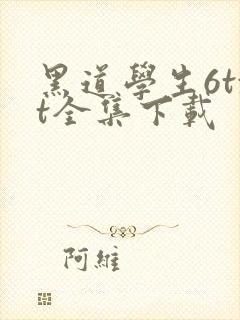 黑道學生6tx
t全集下載
阿維